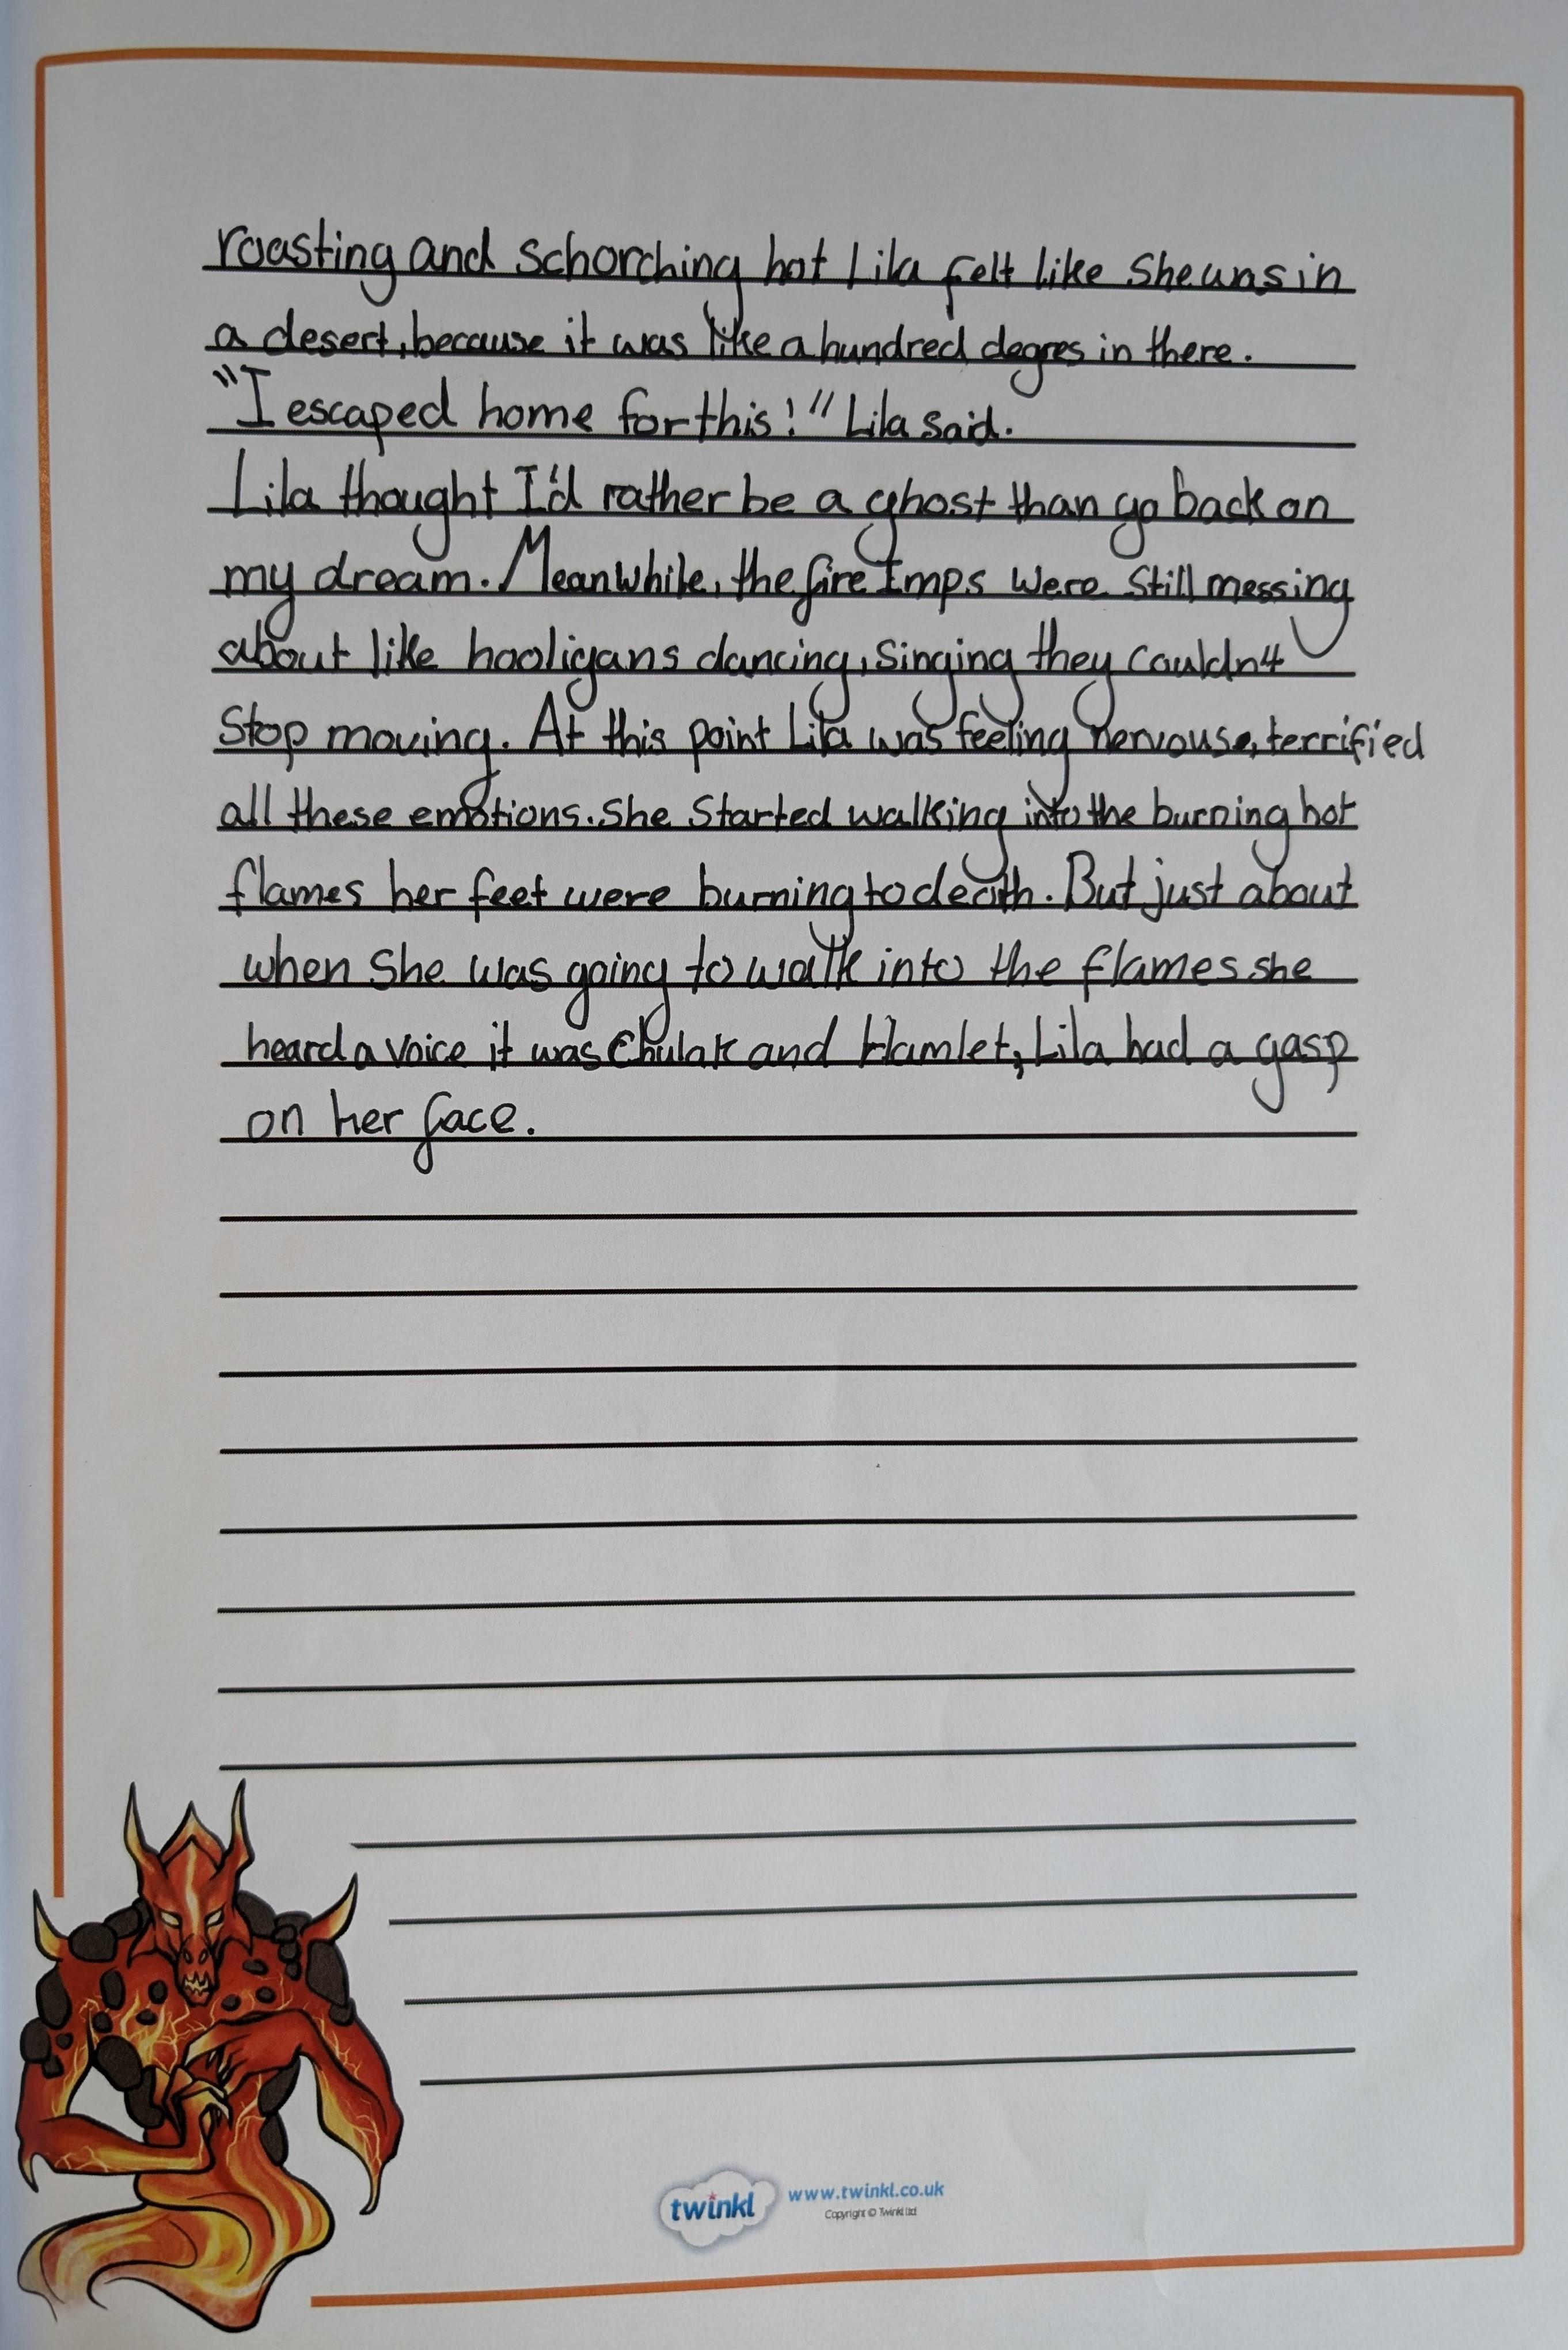 roasting and schorching hot Lila felt like She was in
a desert, because it was like a hundred degres in there.
"I escaped home for this!" Lila said.
Lila thought I'd rather be a ghost than go back on
my dream. Meanwhile, the fire Imps were still messing
about like hooligans dancing, singing they couldn't
stop moving. At this point Lila was feeling nervouse, terrified
all these emotions. She started walking into the burning hot
flames her feet were burning to death. But just about
when she was going to walk into the flames she
heard a voice it was Chulak and Hamlet, Lila had a gasp
on her face.
twinkl
www.twinkl.co.uk
Copyright © Twinkl Ltd